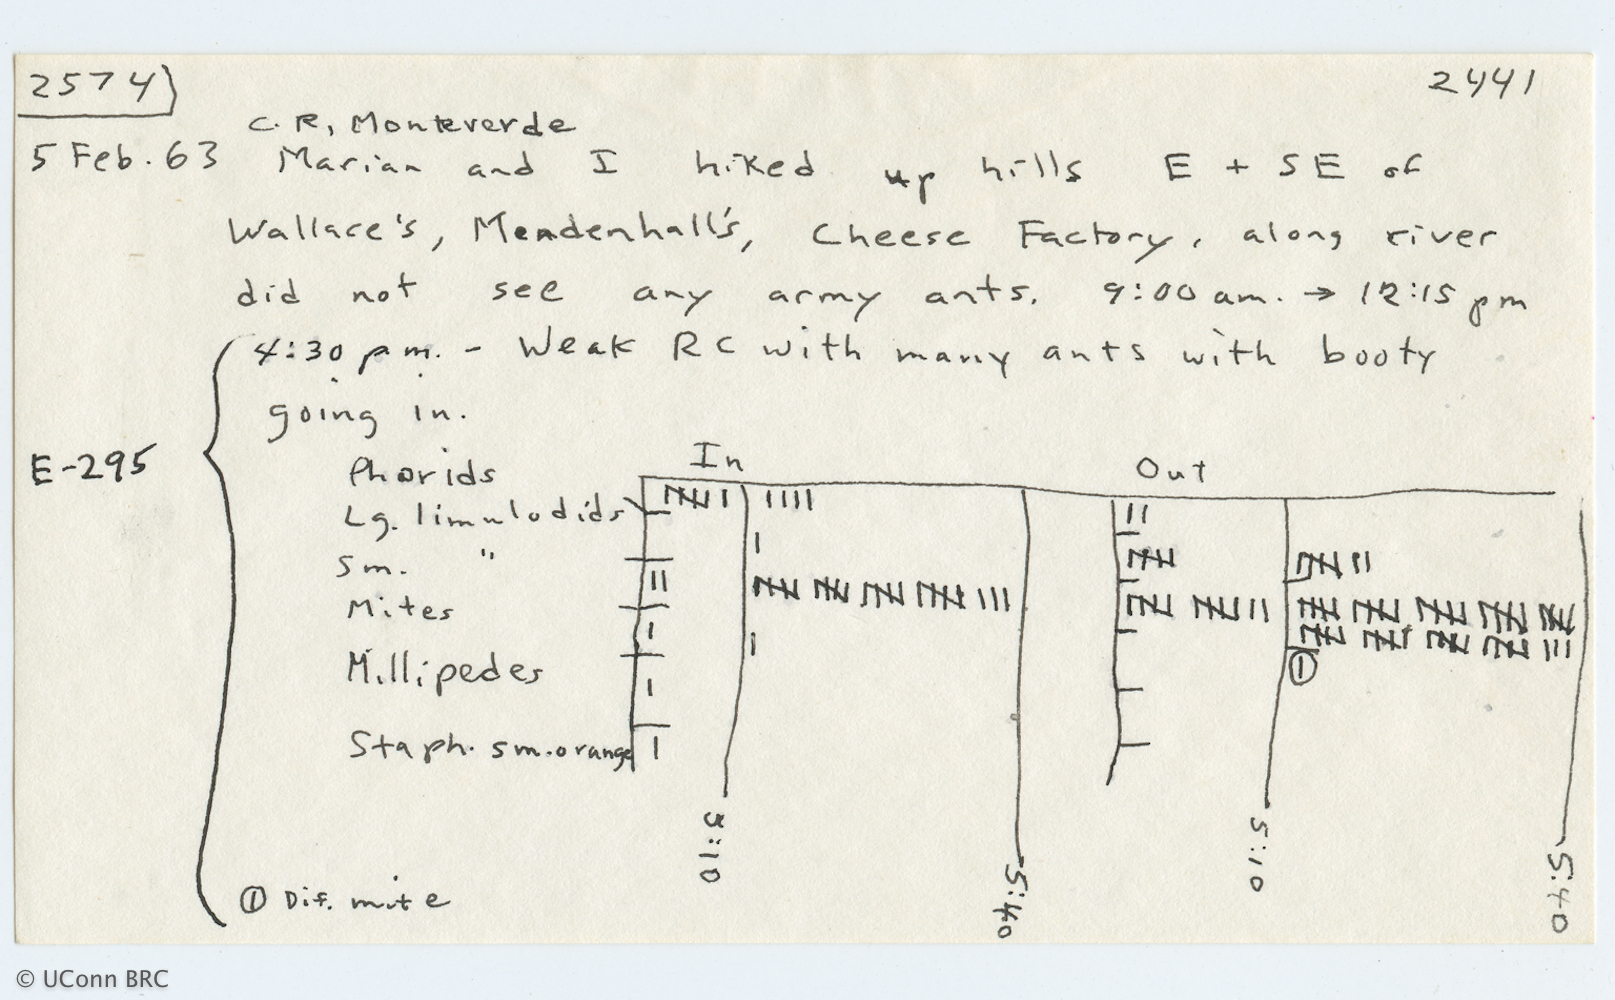 2574 2441
C.R, Monteverde
5 Feb. 63 Marian and I hiked up hills E + SE of
Wallace's, Mendenhall's, Cheese Factory, along river
did not see any army ants. 9:00 am. → 12:15 pm
4:30 p.m. - Weak RC with many ants with booty
going in.
E-295
In Out
Phorids
Lg. limulodids
Sm. "
Mites
Millipedes
Staph. sm. orange
5:10 5:40 5:10 5:40
① Dif. mite
① 
© UConn BRC